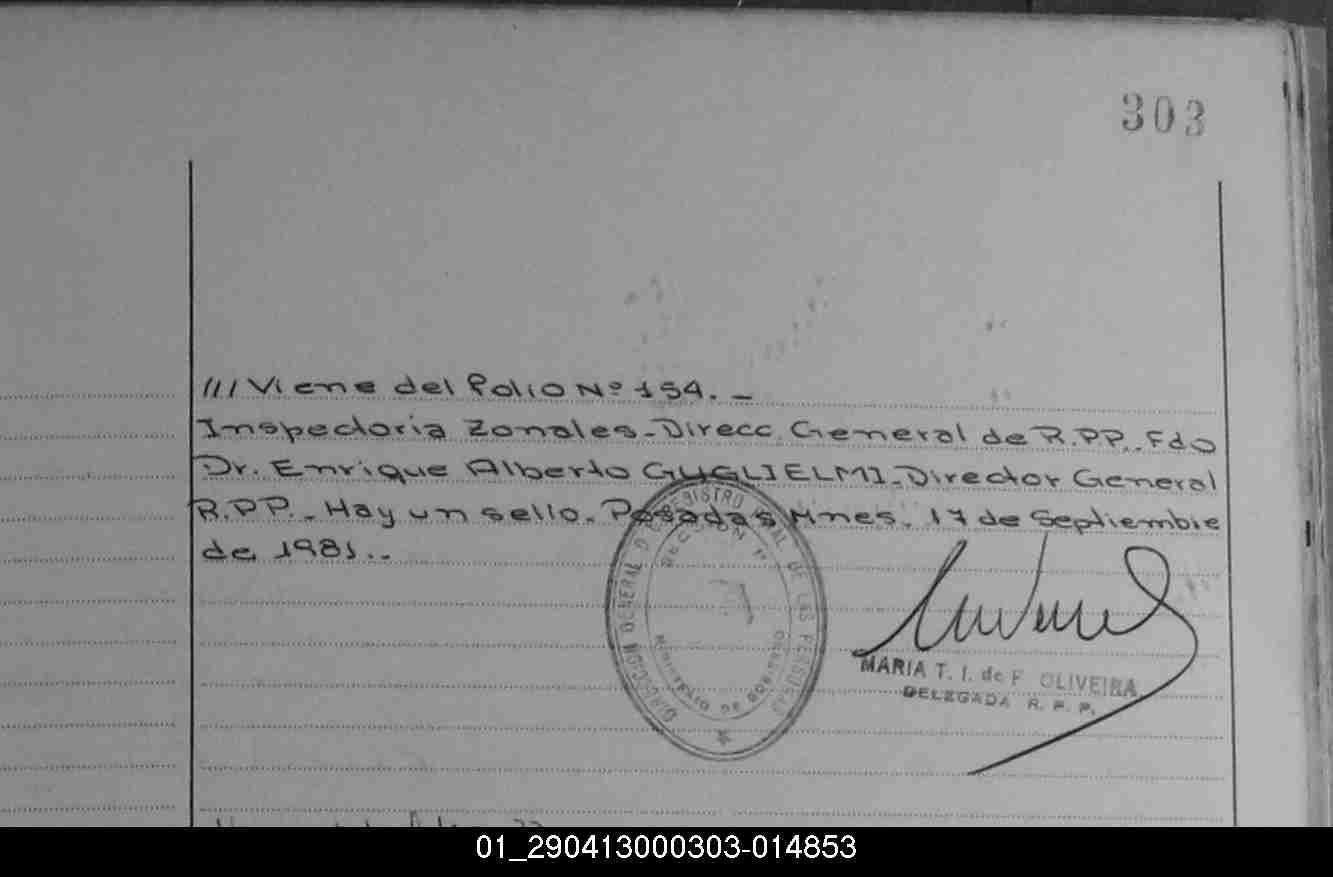 303
/// Viene del Folio Nº 154. _
Inspectoria Zonales - Direcc. General de R.PP.. Fdo
Dr. Enrique Alberto GUGLIELMI - Director General
R.PP. - Hay un sello. Posadas Mnes. 17 de Septiembre
de 1981..
DIRECCION GENERAL D REGISTRO DE LAS PERSONAS
MINISTERIO DE GOBIERNO
MARIA T. I. de F. OLIVEIRA
DELEGADA R. P. P.
01_290413000303-014853